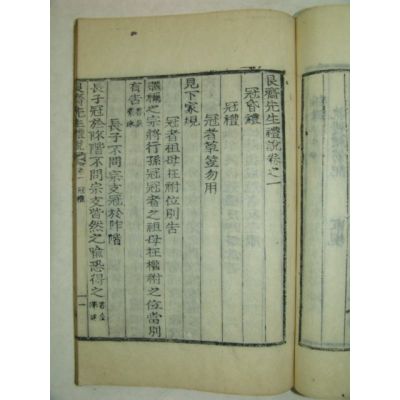 艮齋先生禮說卷之一
冠昏禮
冠禮
冠者草笠勿用
見下家規
冠者祖母在祔位別告
繼禰之宗將行孫冠冠者之祖母在權祔之位當別
有告
長子不問宗支冠於阼階
長子冠於阼階不問宗支皆然之喩恐得之 書金澤述
艮齋先生禮說 卷之一 冠禮 一